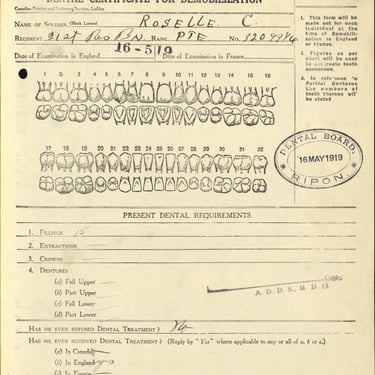 DENTAL CERTIFICATE FOR DEMOBILIZATION
Canadian Printing and Stationery Services, London
NAME OF SOLDIER (Block Letters) ROSELLE. C.
REGIMENT 21st Res Bn. RANK PTE No.
Date of Examination in England 16-5/19 Date of Examination in France
1. This form will be made out for each individual at the time of Demobilization in England or France.
2. Figures as per chart will be used to designate teeth concerned.
3. In reference to Partial Dentures the numbers of teeth thereon will be stated
1 5 6 7 8 9 10 11 12 13 14 15 16
17 18 19 20 21 22 23 24 25 26 27 28 29 30 31 32
DENTAL BOARD.
16 MAY 1919
RIPON.
PRESENT DENTAL REQUIREMENTS
1. FILLINGS 15
2. EXTRACTIONS
3. CROWNS
4. DENTURES
(a) Full Upper
(b) Part Upper
(c) Full Lower
(d) Part Lower
A. D. D. S., M. D. 13
HAS HE EVER REFUSED DENTAL TREATMENT? No
HAS HE EVER RECEIVED DENTAL TREATMENT? (Reply by "Yes" where applicable to any or all of a, b or c.)
(a) In Canada
(b) In England yes
(c) In France